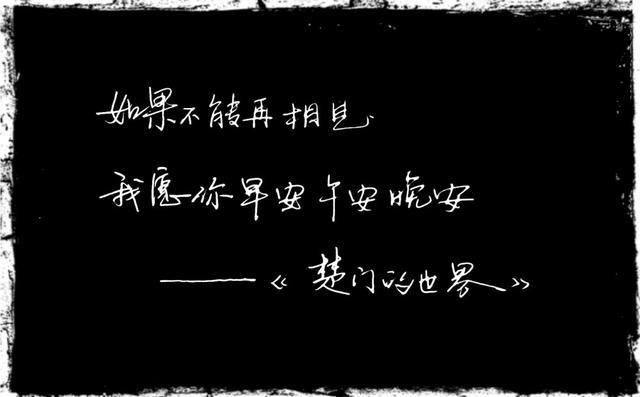 如果不能再相见.
我愿你早安午安晚安
——《楚门的世界》